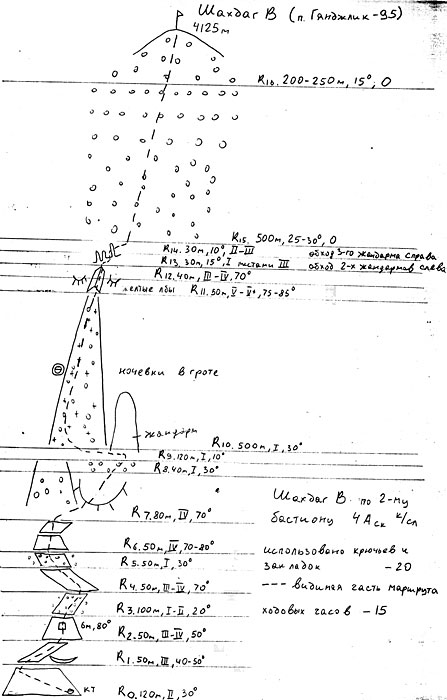 Шахдаг В (п. Гянджлик-95)
4125м
R16. 200-250м, 15°, 0
R15. 500м, 25-30°, 0
R14. 30м, 10°, II-III обход 3-го жандарма справа
R13. 30м, 15°, I местами III обход 2-х жандармов слева
R12. 40м, III-IV, 70°
желтые лбы R11. 50м, V-V+, 75-85°
ночевки в гроте
жандарм
R10. 500м, I, 30°
R9. 120м, I, 10°
R8. 40м, I, 30°
R7. 80м, IV, 70°
R6. 50м, IV, 70-80°
R5. 50м, I, 30°
R4. 50м, III-IV, 70°
R3. 100м, I-II, 20°
6м, 80° R2. 50м, III-IV, 50°
R1. 50м, III, 40-50°
кт R0. 120м, II, 30°
Шахдаг В. по 2-му
бастиону 4А ск к/сл
использовано крючьев и
закладок - 20
--- видимая часть маршрута
ходовых часов - 15